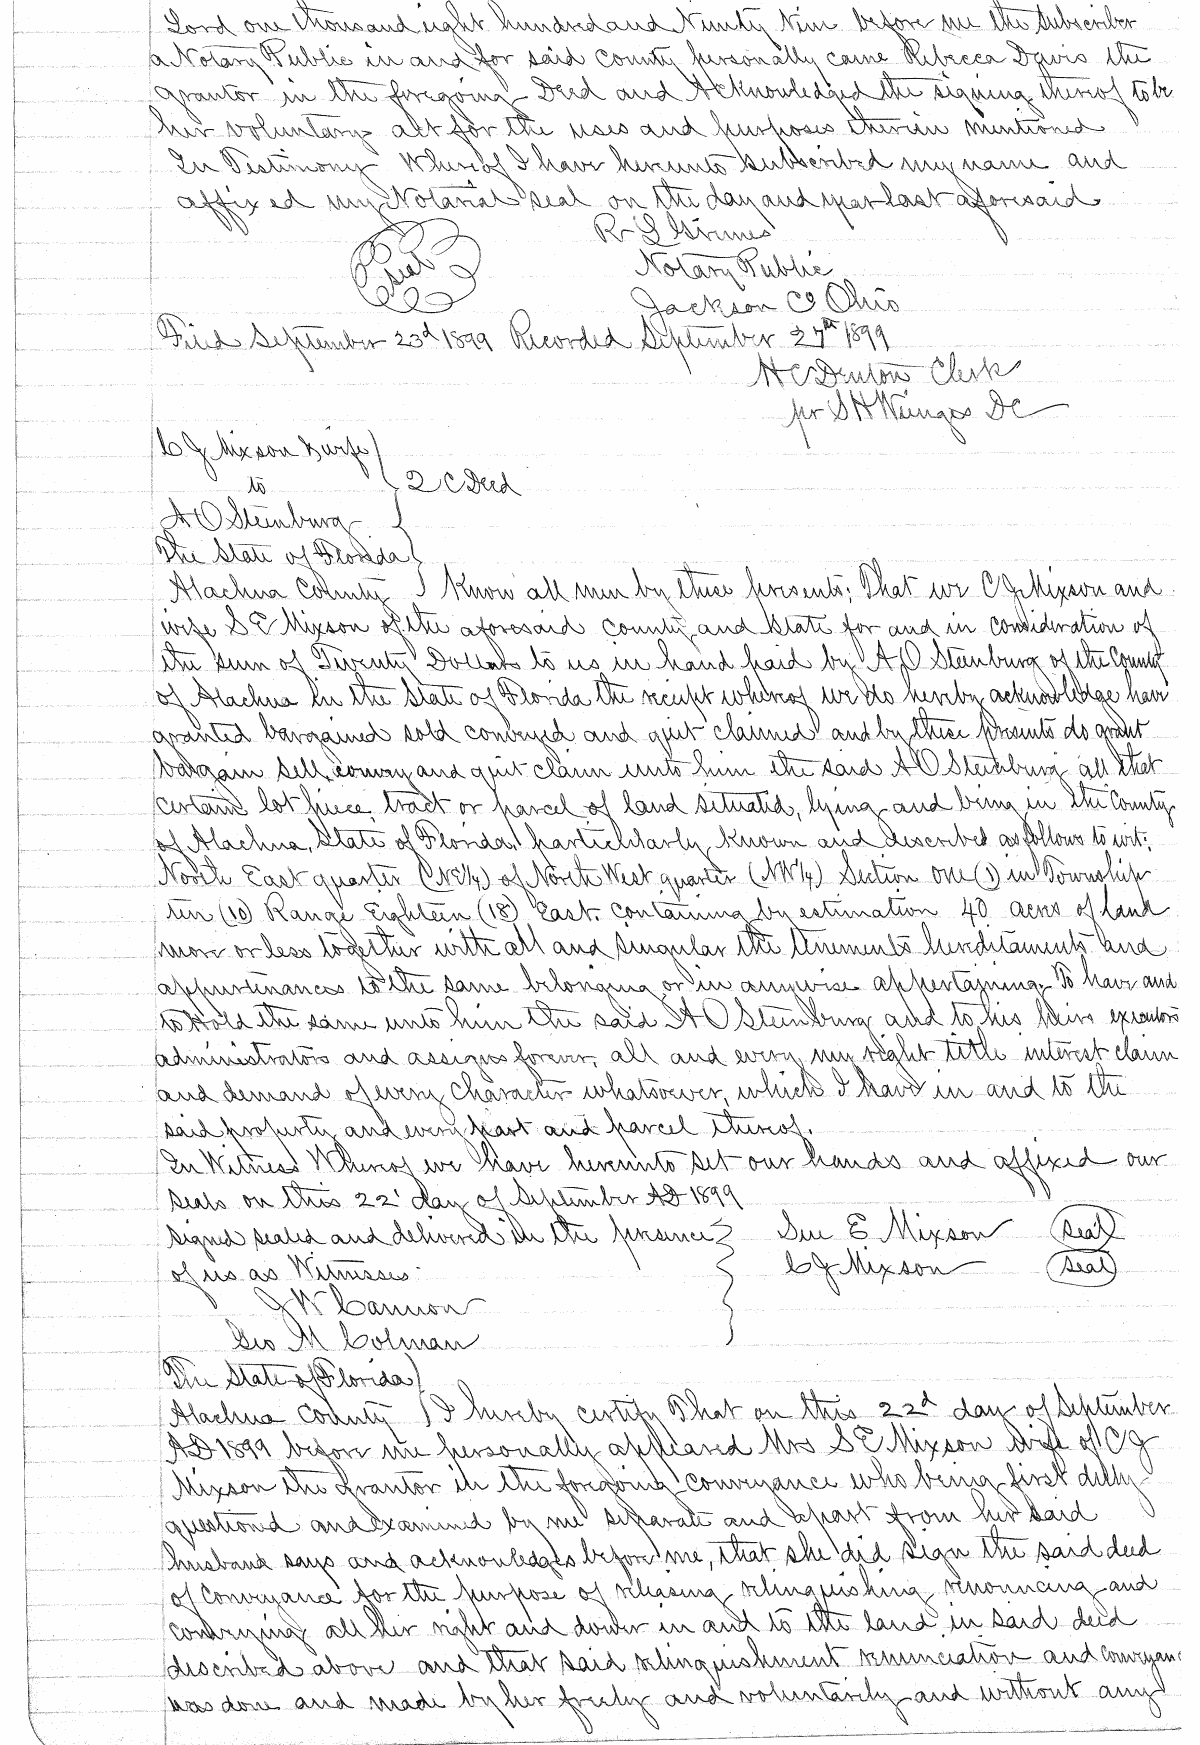 Lord one thousand eight hundred and Ninety Nine before me the subscriber
a Notary Public in and for said County personally came Rebecca Davis the
grantor in the foregoing Deed and Acknowledged the signing thereof to be
her voluntary act for the uses and purposes therein mentioned
In Testimony Whereof I have hereunto subscribed my name and
affixed my Notarial seal on the day and year last aforesaid
R L Grimes
Seal
Notary Public
Jackson Co Ohio
Filed September 23d 1899 Recorded September 27th 1899
H C Denton Clerk
pr S H Wienges DC
C J Mixson & wife
to
2 C Deed
A O Steenburg
The State of Florida
Alachua County Know all men by these presents; That we C J Mixson and
wife S E Mixson of the aforesaid County and State for and in consideration of
the sum of Twenty Dollars to us in hand paid by A O Steenburg of the County
of Alachua in the State of Florida the receipt whereof we do hereby acknowledge have
granted bargained sold conveyed and quit claimed and by these presents do grant
bargain sell, convey and quit claim unto him the said A O Steenburg all that
certain lot piece, tract or parcel of land situated, lying and being in the County
of Alachua, State of Florida, particularly known and described as follows to wit;
North East quarter (NE¼) of North West quarter (NW¼) Section one (1) in Township
ten (10) Range Eighteen (18) East. Containing by estimation 40 acres of land
more or less together with all and singular the tenements hereditaments and
appurtenances to the same belonging or in anywise appertaining. To have and
to hold the same unto him the said A O Steenburg and to his heirs executors
administrators and assigns forever, all and every my right title interest claim
and demand of every character whatsoever, which I have in and to the
said property and every part and parcel thereof.
In Witness Whereof we have hereunto set our hands and affixed our
seals on this 22' day of September AD 1899
signed sealed and delivered in the presence Sue E Mixson Seal
of us as Witnesses. C J Mixson Seal
J W Cannon
Geo M Colman
The State of Florida
Alachua County I hereby certify That on this 22d day of September
AD 1899 before me personally appeared Mrs S E Mixson wife of C J
Mixson the Grantor in the foregoing conveyance who being first duly
questioned and examined by me separate and apart from her said
husband says and acknowledges before me, that she did sign the said deed
of conveyance for the purpose of releasing relinquishing renouncing and
conveying all her right and dower in and to the land in said deed
described above and that said relinquishment renunciation and conveyan
was done and made by her freely and voluntarily and without any